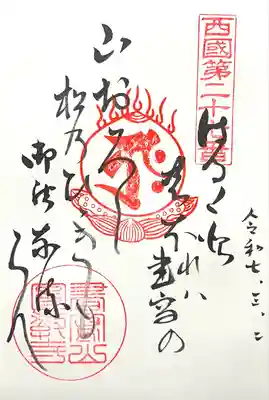 西國第二十七番
令和七、三、二
はる〱と
れハ書寫の
山おろし
松乃ひゞきも
御法奈流らん
書寫山
圓教寺